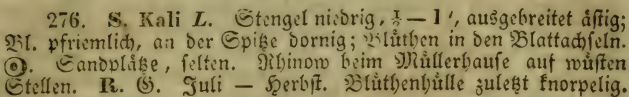 276. S. Kali L. Stengel niedrig, ⅓ — 1 ′, ausgebreitet ästig;
Bl. pfriemlich, an der Spitze dornig; Blüthen in den Blattachseln.
☉. Sandplätze, selten. Rhinow beim Müllerhause auf wüsten
Stellen. R. G. Juli — Herbst. Blüthenhülle zuletzt knorpelig.